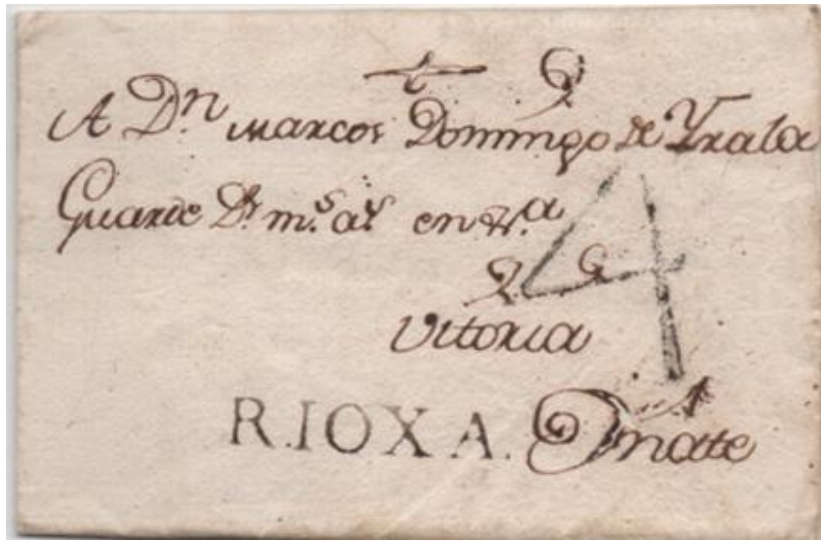 A Dn Marcos Domingo de Yrala
Guarde Ds ms as en Va
4
Vitoria
R.IOXA. Oñate